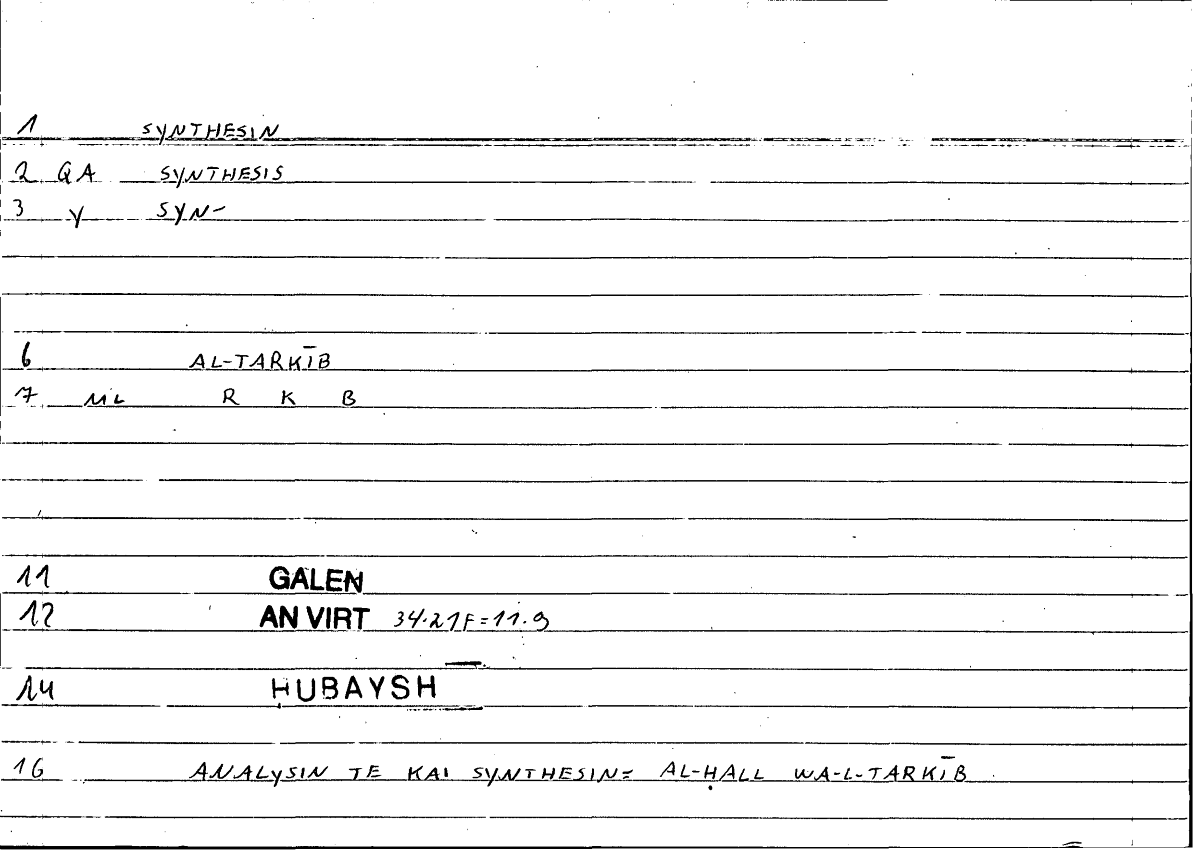 1 SYNTHESIN
2 QA SYNTHESIS
3 Y SYN-
6 AL-TARKĪB
7 ML R K B
11 GALEN
12 AN VIRT 34.21F=11.9
14 ḤUBAYSH
16 ANALYSIN TE KAI SYNTHESIN= AL-ḤALL WA-L-TARKĪB